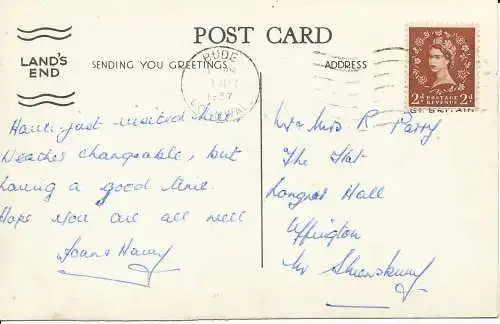 POST CARD
LAND'S
END
SENDING YOU GREETINGS
ADDRESS
BUDE
CORNWALL
2d POSTAGE 2d
REVENUE
GT. BRITAIN
Have just visited here
Weather changeable, but
having a good time.
Hope you are all well
Joan & Harry
Mr & Mrs R Parry
The Flat
Longner Hall
Uffington
Nr Shrewsbury